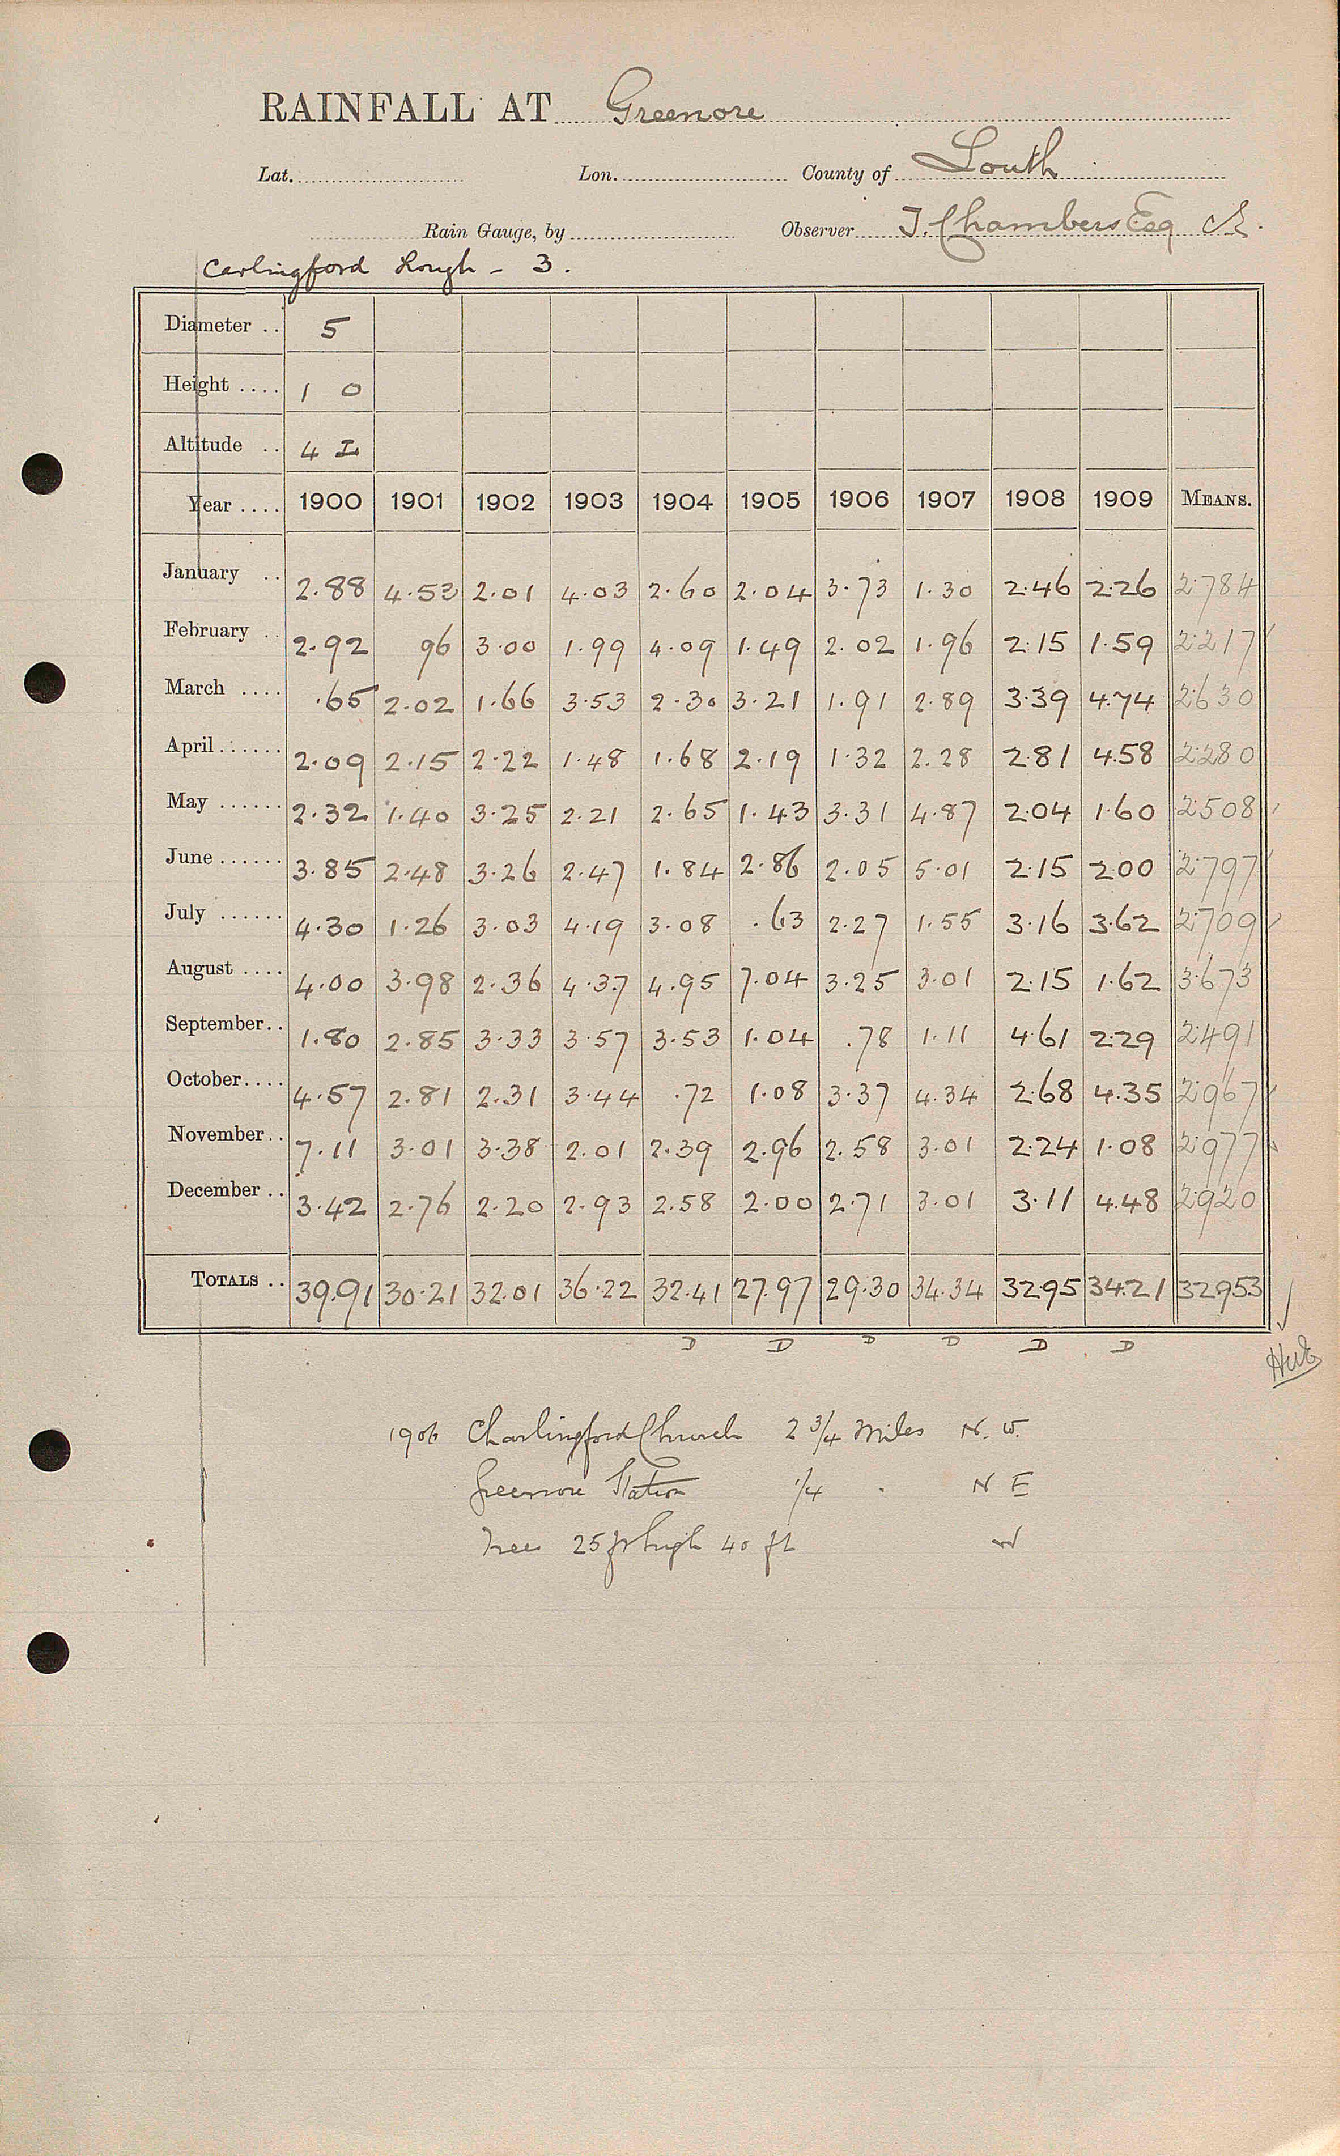 RAINFALL AT Greenore
Lat. Lon. County of Louth
Rain Gauge, by Observer J. Chambers Esq
Carlingford Lough - 3.
Diameter .. 5
Height .... 1 0
Altitude ..
Year .... 1900 1901 1902 1903 1904 1905 1906 1907 1908 1909 MEANS.
January .. 2.88 4.52 2.01 4.03 2.60 2.04 3.73 1.30 2.46 2.26 2.784
February .. 2.92 96 3.00 1.99 4.09 1.49 2.02 1.96 2.15 1.59 2.217
March .... .65 2.02 1.66 3.53 2.30 3.21 1.91 2.89 3.39 4.74 2.630
April ...... 2.09 2.15 2.22 1.48 1.68 2.19 1.32 2.28 2.81 4.58 2.280
May ...... 2.32 1.40 3.25 2.21 2.65 1.43 3.31 4.87 2.04 1.60 2.508
June ...... 3.85 2.48 3.26 2.47 1.84 2.86 2.05 5.01 2.15 2.00 2.797
July ...... 4.30 1.26 3.03 4.19 3.08 .63 2.27 1.55 3.16 3.62 2.709
August .... 4.00 3.98 2.36 4.37 4.95 7.04 3.25 3.01 2.15 1.62 3.673
September.. 1.80 2.85 3.33 3.57 3.53 1.04 .78 1.11 4.61 2.29 2.491
October.... 4.57 2.81 2.31 3.44 .72 1.08 3.37 4.34 2.68 4.35 2.967
November.. 7.11 3.01 3.38 2.01 2.39 2.96 2.58 3.01 2.24 1.08 2.977
December .. 3.42 2.76 2.20 2.93 2.58 2.00 2.71 3.01 3.11 4.48 2.920
TOTALS .. 39.91 30.21 32.01 36.22 32.41 27.97 29.30 34.34 32.95 34.21 32.953
D D D D D D
1906 Charlingford Church 2 3/4 Miles N. W.
Greenore Station 1/4 " N E
Tree 25 ft high 40 ft W